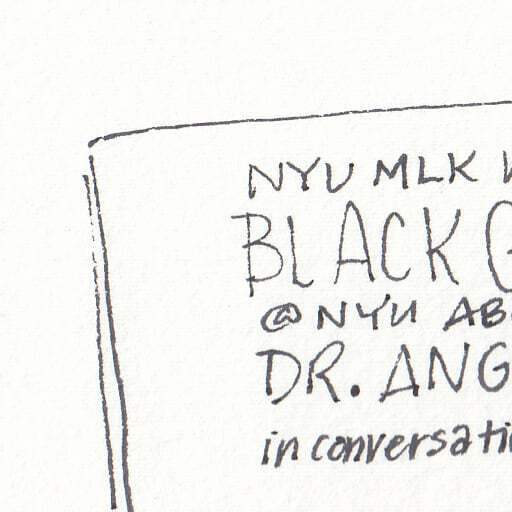 NYU MLK
BLACK G
@NYU AB
DR. ANG
in conversati